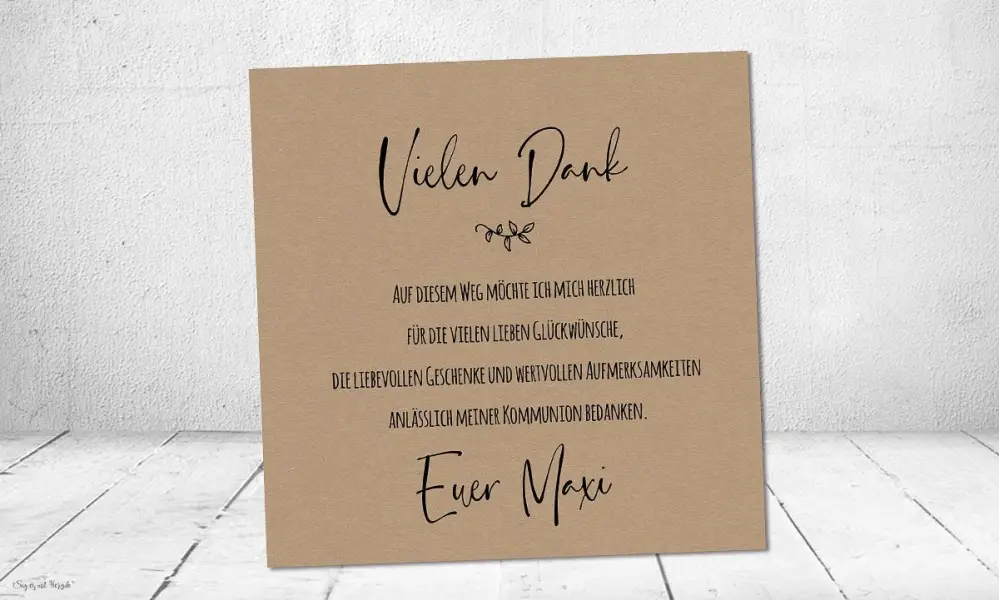 Vielen Dank
Auf diesem Weg möchte ich mich herzlich
für die vielen lieben Glückwünsche,
die liebevollen Geschenke und wertvollen Aufmerksamkeiten
anlässlich meiner Kommunion bedanken.
Euer Maxi